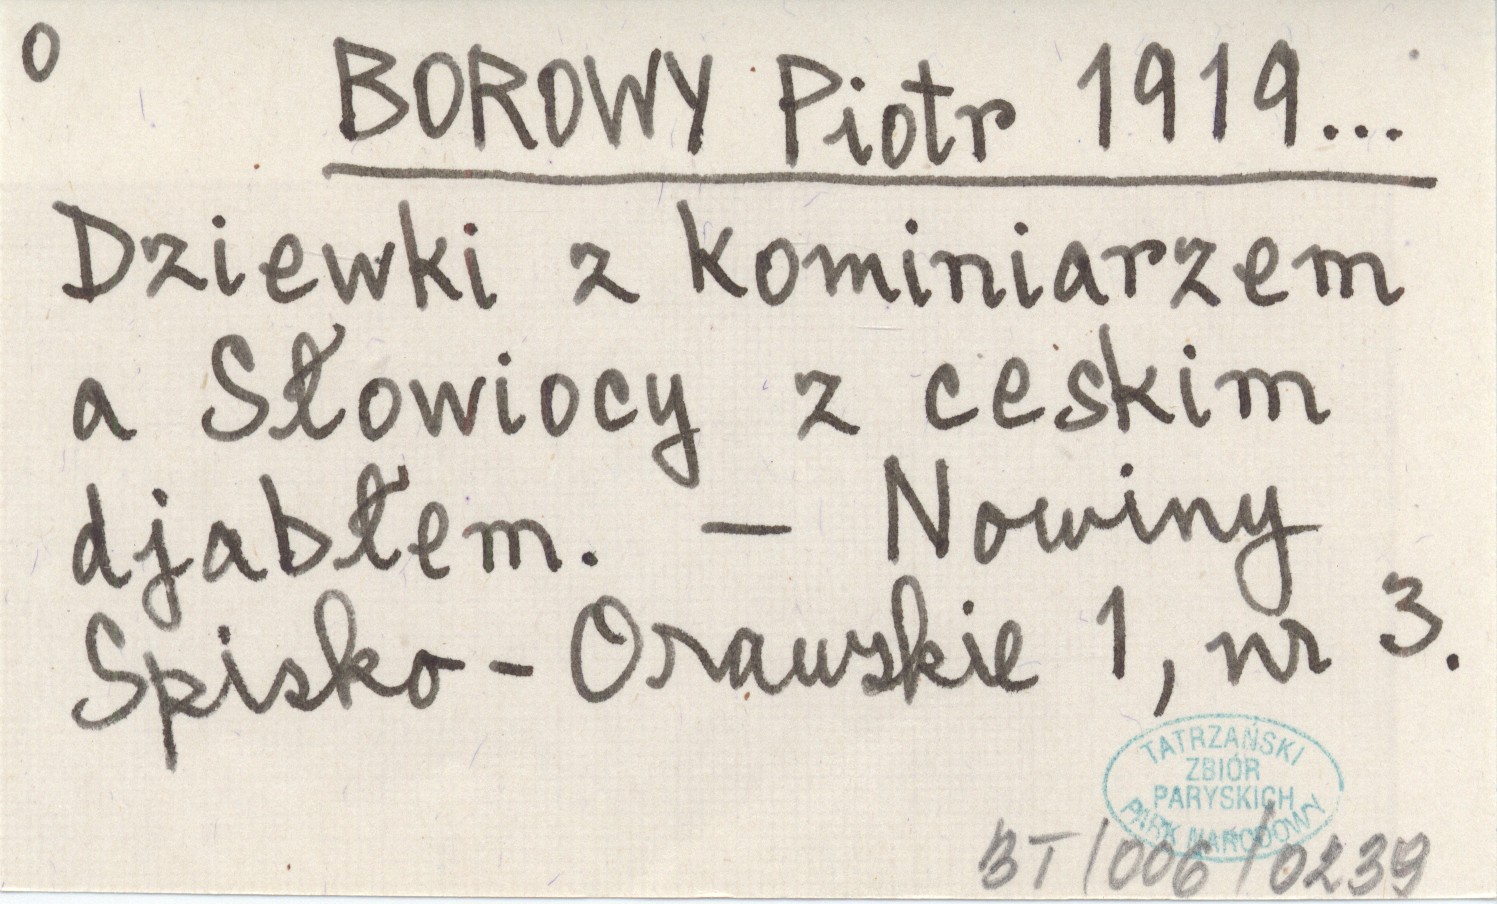 O
BOROWY Piotr 1919...
Dziewki z kominiarzem
a Słowiocy z ceskim
djabłem. — Nowiny
Spisko-Orawskie 1, nr 3.
TATRZAŃSKI
ZBIÓR
PARYSKICH
PARK NARODOWY
BT/006/0239